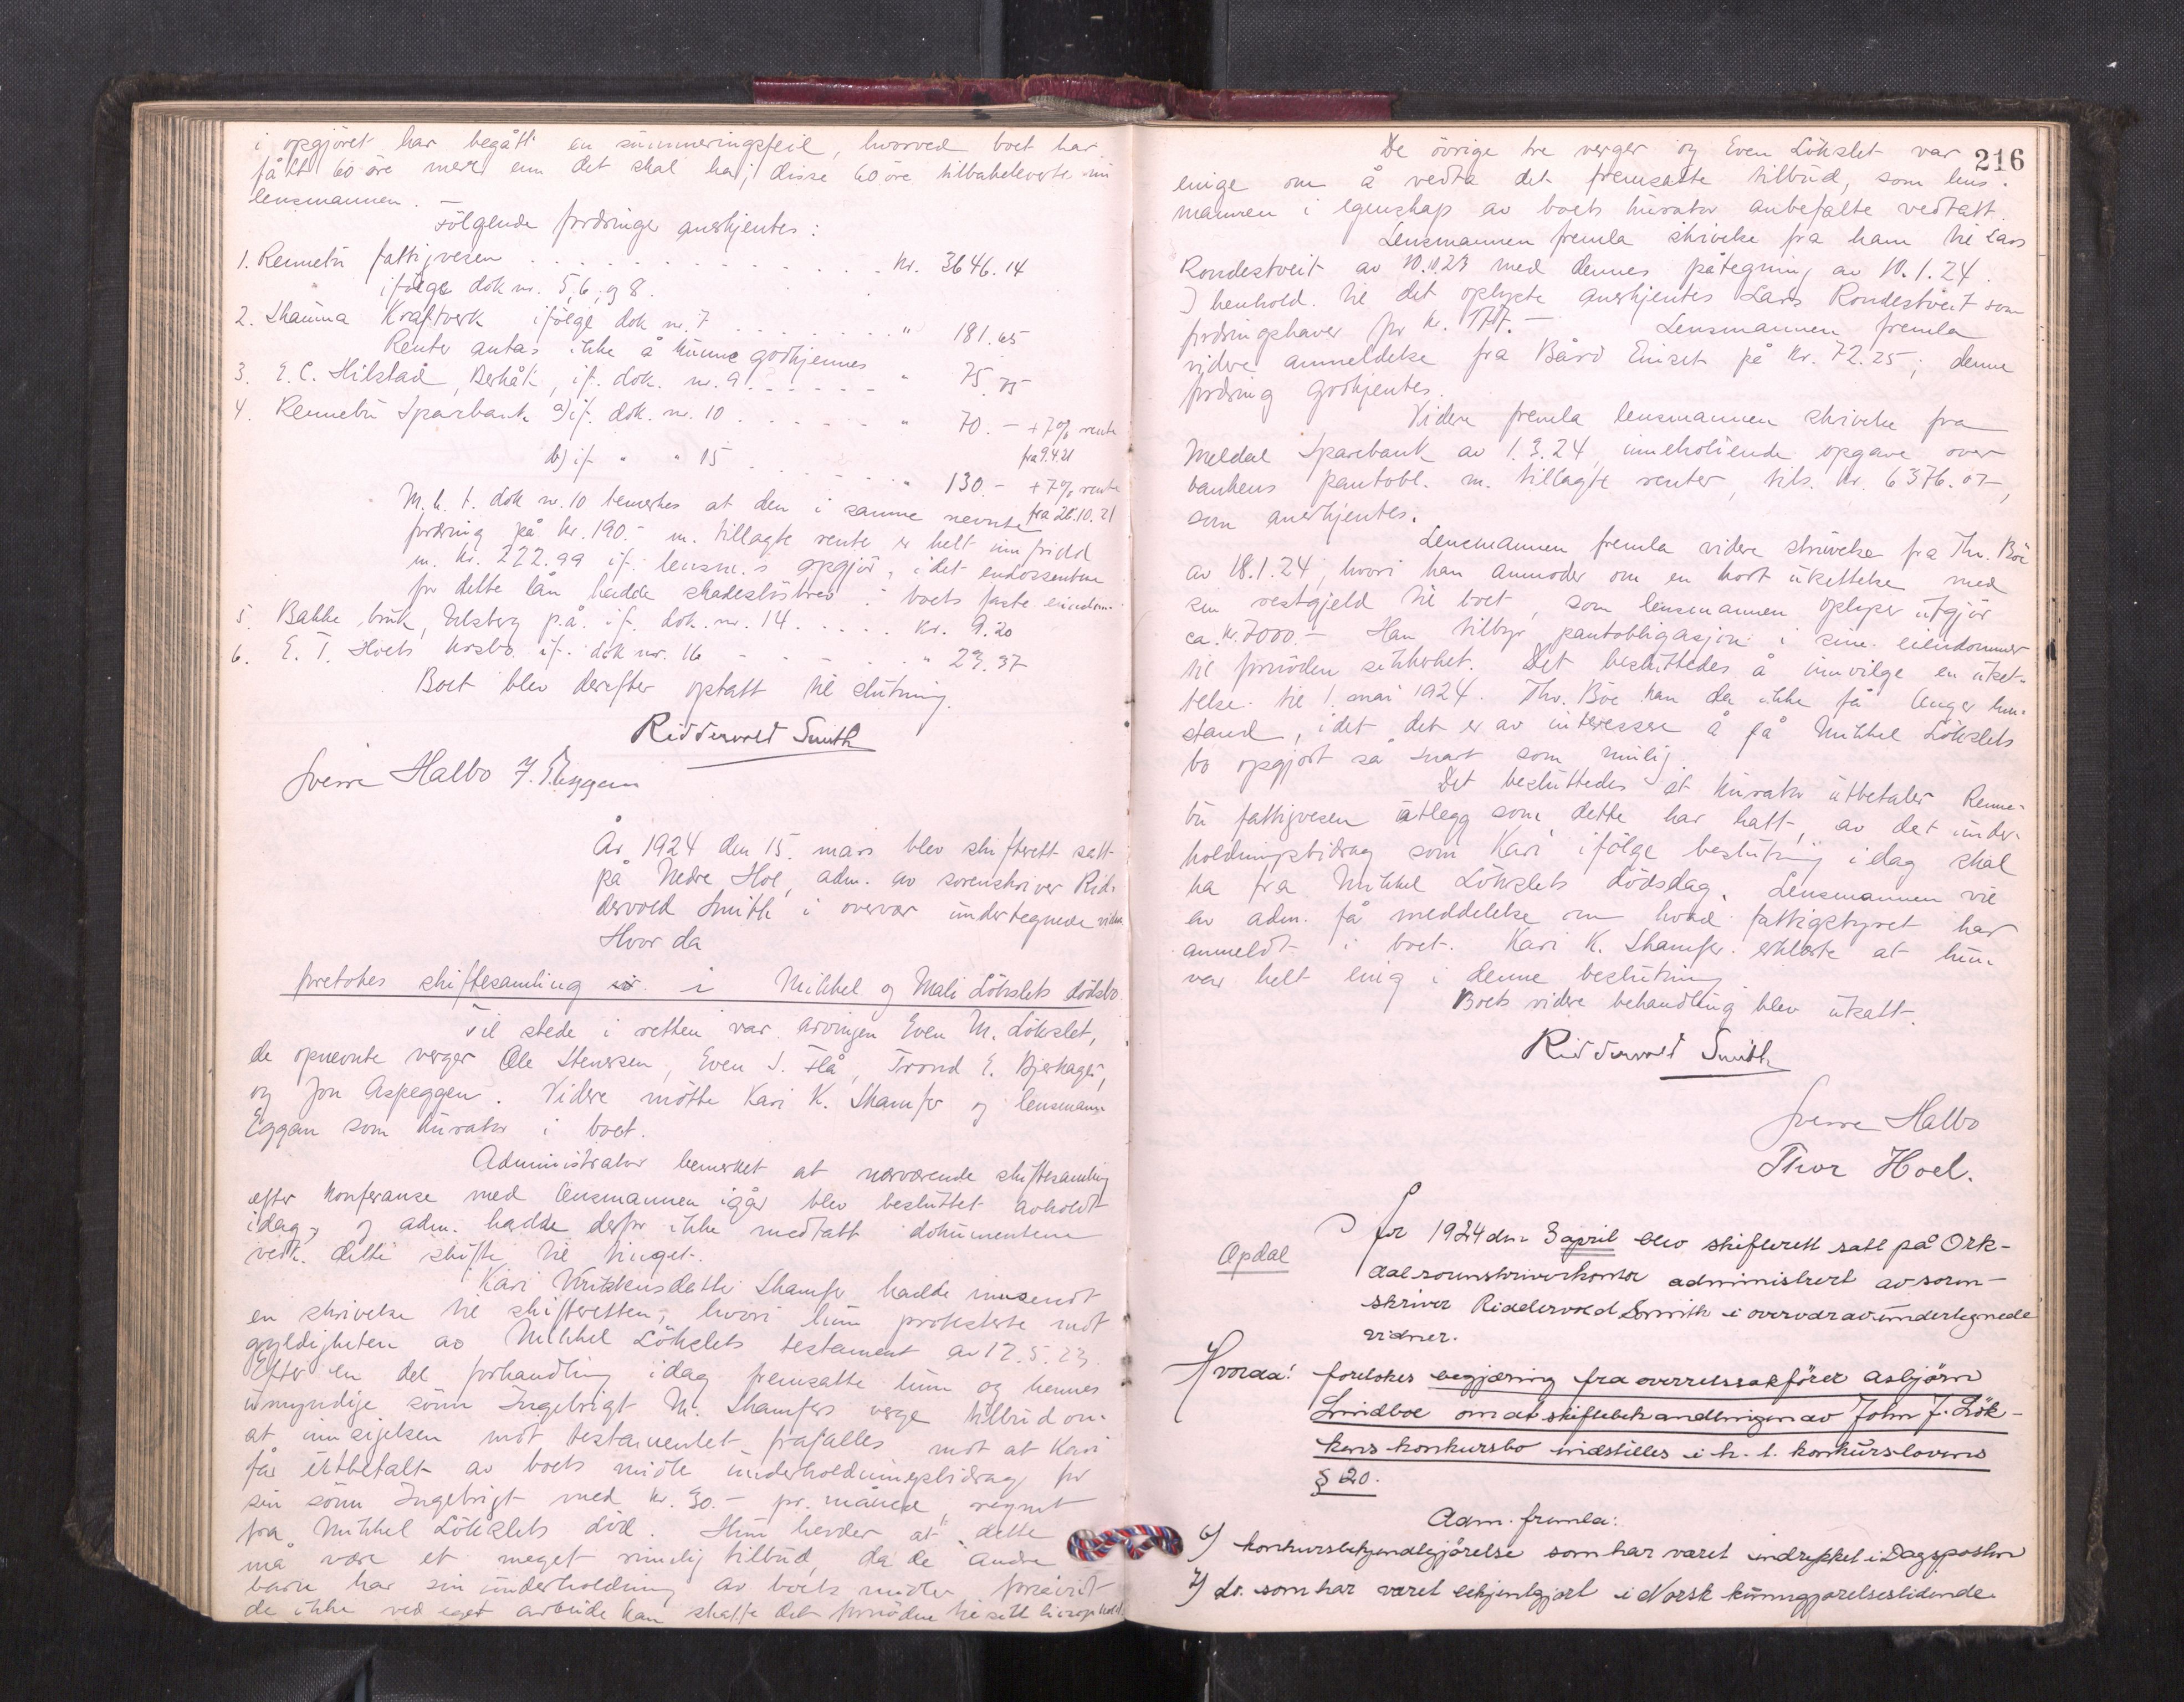 i opgjöret har begått en summeringsfeil, hvorved boet har
fått 60 öre mere enn det skal ha; disse 60 öre tilbakeleverte nu
lensmannen.
Fölgende fordringer anerkjentes:
1. Rennebu fattigvesen . . . . . . . . . . . . . kr. 3646.14
ifölge dok nr. 5, 6, og 8.
2. Skauma Kraftverk ifölge dok nr. 7 . . . . . . . " 181.65
Renter antas ikke å kunne godkjennes
3. E. C. Hilstad, Berkåk, if. dok. nr. 9 . . . . . . " 75.75
4. Rennebu Sparebank a) if. dok. nr. 10 . . . . . . " 70.- + 7% rente
fra 9.4.21
b) if " " 15 . . . . . . " 130.- + 7% rente
fra 26.10.21
M. h. t. dok nr. 10 bemerkes at den i samme nevnte
fordring på kr. 190.- m. tillagte rente er helt innfridd
m. kr. 222.99 if. lensm.s opgjör, idet endossentene
for dette lån hadde skadeslösbrev i boets faste eiendom.
5. Bakke bruk, Ulsberg p.å. if. dok. nr. 14 . . . . . kr. 9.20
6. E. T. Hoels if. dok nr. 16 - - - - - - " 23.37
Boet blev derefter optatt til slutning.
Ridderwold Smith
Sverre Halbo J. Eggan
År 1924 den 15. mars blev skifterett satt
på Nedre Hol, adm. av sorenskriver Rid-
dervold Smith i overvær undertegnede vidner
Hvor da
foretokes skiftesamling i Mikkel og Mali Lökslets dödsbo.
Til stede i retten var arvingen Even M. Lökslet,
de opnevnte verger Ole Stensen, Even S. Flå, Trond E. Bjerkager,
og Jon Aspeggen. Videre mötte Kari K. Skamfer og lensmann
Eggan som kurator i boet.
Administrator bemerket at nærværende skiftesamling
efter konferanse med lensmannen igår blev besluttet avholdt
idag, og adm. hadde derfor ikke medtatt dokumentene
vedk. dette skifte til tinget.
Kari Skamfer hadde innsendt
en skrivelse til skifteretten, hvori hun protesterte mot
gyldigheten av Mikkel Lökslets testament av 12.5.23.
Efter en del forhandling idag fremsatte hun og hennes
umyndige sönn Ingebrigt M. Skamfers verge tilbud om
at innsigelsen mot testamentet frafalles mot at Kari
får utbetalt av boets midle underholdningsbidrag for
sin sönn Ingebrigt med kr. 30.- pr. måned, regnet
fra Mikkel Lökslets död. Hun hevder at dette
må være et meget rimelig tilbud, da de andre
barn har sin underholdning av boets midler forsåvidt
de ikke ved eget arbeide kan skaffe det fornödne til sitt livsophold.
216
De övrige tre verger og Even Lökslet var
enige om å vedta det fremsatte tilbud, som lens-
mannen i egenskap av boets kurator anbefalte vedtatt.
Lensmannen fremla skrivelse fra ham til Lars
Rondestveit av 10.1.23 med dennes påtegning av 10.1.24.
I henhold til det oplyste anerkjentes Lars Rondestveit som
fordringshaver for kr. 177.- Lensmannen fremla
videre anmeldelse fra Bård Eniset på kr. 72.25; denne
fordring godkjentes.
Videre fremla lensmannen skrivelse fra
Meldal Sparebank av 1.3.24, inneholdende opgave over
bankens pantobl. m. tillagte renter, tils. kr. 6376.07,
som anerkjentes.
Lensmannen fremla videre skrivelse fra Thr. Böe
av 18.1.24, hvori han anmoder om en kort utsettelse med
sin restgjeld til boet, som lensmannen oplyser utgjör
ca. kr. 7000.- Han tilbyr pantobligasjon i sine eiendommer
til fornöden sikkerhet. Det besluttedes å innvilge en utset-
telse til 1. mai 1924. Thr. Böe kan da ikke få lenger hen-
stand, idet det er av interesse å få Mikkel Lökslets
bo opgjort så snart som mulig.
Det besluttedes at kurator utbetaler Renne-
bu fattigvesen utlegg som dette har hatt, av det under-
holdningsbidrag som Kari ifölge beslutning idag skal
ha fra Mikkel Lökslets dödsdag. Lensmannen vil
av adm. få meddelelse om hvad fattigstyret har
anmeldt i boet. Kari K. Skamfer erklærte at hun
var helt enig i denne beslutning.
Boets videre behandling blev utsatt.
Ridderwold Smith
Sverre Halbo
Thor Hoel.
Opdal
År 1924 den 3 april blev skifterett satt på Ork-
dal sorenskriverkontor administrert av soren-
skriver Riddervold Smith i overvær av undertegnede
vidner.
Hvorda: foretokes begjæring fra overretssakförer Asbjörn
Lindboe om at skiftebehandlingen av John J. Lök-
kens konkursbo indstilles i h. t. konkurslovens
§ 20.
Adm. fremla:
6) konkursbekjendtgjörelse som har været indrykket i Dagsposten
7) do. som har været bekjentgjort i Norsk kunngjørelsestidende